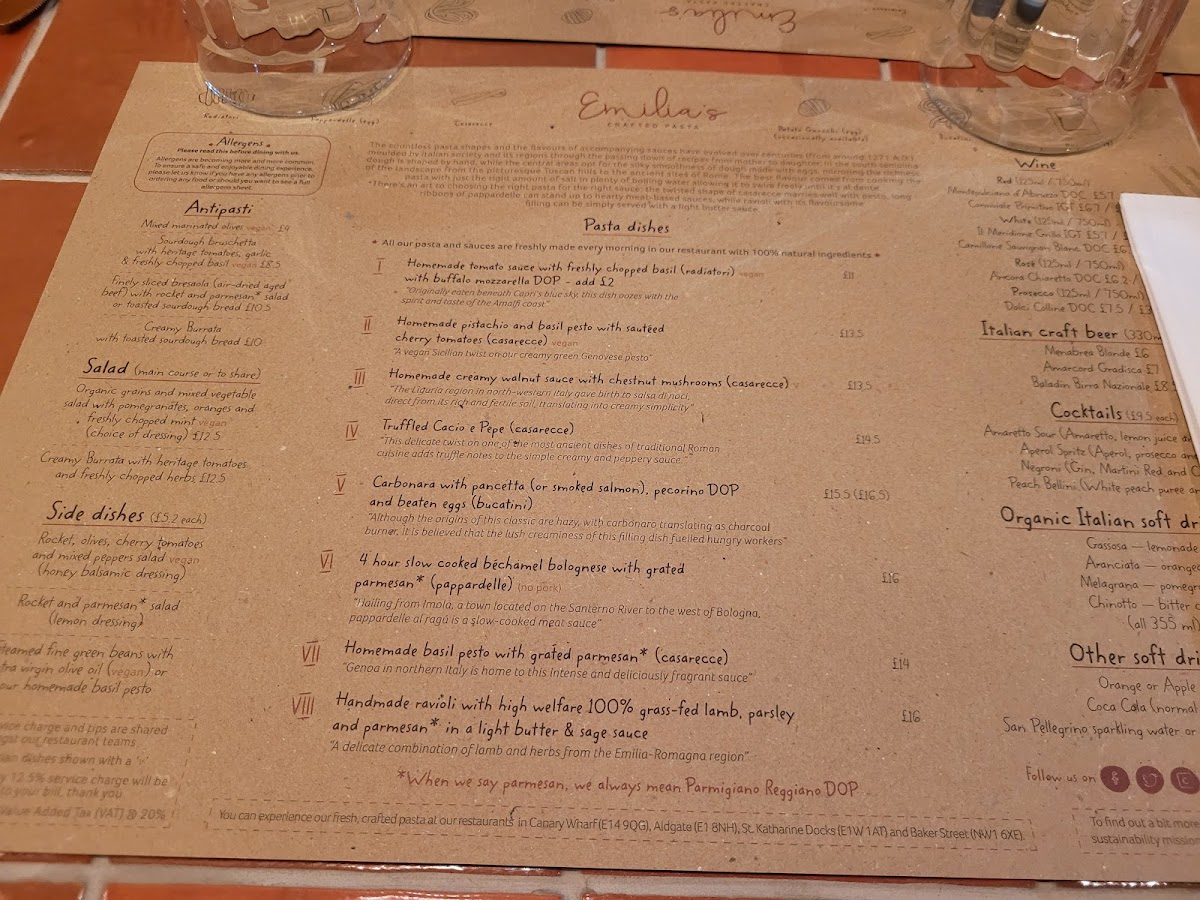 Emilia's
Emilia's
CRAFTED PASTA
Radiatori
Pappardelle (egg)
Casarecce
Potato Gnocchi (egg)
(occasionally available)
Allergens
Please read this before dining with us.
Allergens are becoming more and more common.
To ensure a safe and enjoyable dining experience,
please let us know if you have any allergens prior to
ordering any food or should you want to see a full
allergens sheet.
Antipasti
Mixed marinated olives vegan £4
Sourdough bruschetta
with heritage tomatoes, garlic
& freshly chopped basil vegan £8.5
Finely sliced bresaola (air-dried aged
beef) with rocket and parmesan* salad
or toasted sourdough bread £10.5
Creamy Burrata
with toasted sourdough bread £10
Salad (main course or to share)
Organic grains and mixed vegetable
salad with pomegranates, oranges and
freshly chopped mint vegan
(choice of dressing) £12.5
Creamy Burrata with heritage tomatoes
and freshly chopped herbs £12.5
Side dishes (£5.2 each)
Rocket, olives, cherry tomatoes
and mixed peppers salad vegan
(honey balsamic dressing)
Rocket and parmesan* salad
(lemon dressing)
teamed fine green beans with
tra virgin olive oil (vegan) or
our homemade basil pesto
vice charge and tips are shared
gst our restaurant teams
ian dishes shown with a 'v'
y 12.5% service charge will be
to your bill, thank you
Value Added Tax (VAT) @ 20%
The countless pasta shapes and the flavours of accompanying sauces have evolved over centuries (from around 1271 A.D.)
moulded by Italian society and its regions through the passing down of recipes from mother to daughter. In the south, the
dough is shaped by hand, while the central areas opt for the silky smoothness of dough made with eggs, mirroring the richness
of the landscape from the picturesque Tuscan hills to the ancient sites of Rome. The best flavour comes from cooking the
pasta with just the right amount of salt in plenty of boiling water allowing it to swim freely until it's al dente.
There's an art to choosing the right pasta for the right sauce. The twisted shape of casarecce marries well with pesto, long
ribbons of pappardelle can stand up to hearty meat-based sauces, while ravioli with its flavoursome
filling can be simply served with a light butter sauce.
Pasta dishes
* All our pasta and sauces are freshly made every morning in our restaurant with 100% natural ingredients *
I Homemade tomato sauce with freshly chopped basil (radiatori) vegan £11
with buffalo mozzarella DOP - add £2
"Originally eaten beneath Capri's blue sky, this dish oozes with the
spirit and taste of the Amalfi coast"
II Homemade pistachio and basil pesto with sautéed £13.5
cherry tomatoes (casarecce) vegan
"A vegan Sicilian twist on our creamy green Genovese pesto"
III Homemade creamy walnut sauce with chestnut mushrooms (casarecce) v £13.5
"The Liguria region in north-western Italy gave birth to salsa di noci,
direct from its rich and fertile soil, translating into creamy simplicity"
IV Truffled Cacio e Pepe (casarecce) £14.5
"This delicate twist on one of the most ancient dishes of traditional Roman
cuisine adds truffle notes to the simple creamy and peppery sauce."
V Carbonara with pancetta (or smoked salmon), pecorino DOP £15.5 (£16.5)
and beaten eggs (bucatini)
"Although the origins of this classic are hazy, with carbonaro translating as charcoal
burner, it is believed that the lush creaminess of this filling dish fuelled hungry workers"
VI 4 hour slow cooked béchamel bolognese with grated £16
parmesan* (pappardelle) (no pork)
"Hailing from Imola, a town located on the Santerno River to the west of Bologna,
pappardelle al ragù is a slow-cooked meat sauce"
VII Homemade basil pesto with grated parmesan* (casarecce) £14
"Genoa in northern Italy is home to this intense and deliciously fragrant sauce"
VIII Handmade ravioli with high welfare 100% grass-fed lamb, parsley £16
and parmesan* in a light butter & sage sauce
"A delicate combination of lamb and herbs from the Emilia-Romagna region"
*When we say parmesan, we always mean Parmigiano Reggiano DOP
You can experience our fresh, crafted pasta at our restaurants in Canary Wharf (E14 9QG), Aldgate (E1 8NH), St. Katharine Docks (E1W 1AT) and Baker Street (NW1 6XE).
Wine
Red (125ml / 750ml)
Montepulciano d'Abruzzo DOC £5.7
Primitivo IGT £6.7 /
White (125ml / 750ml)
Il Meridione Grillo IGT £5.7 /
Sauvignon Blanc DOC £6
Rosé (125ml / 750ml)
Ancora Chiaretto DOC £6.2 /
Prosecco (125ml / 750ml)
Dolci Colline DOC £7.5 / £3
Italian craft beer (330m
Menabrea Blonde £6
Amarcord Gradisca £7
Baladin Birra Nazionale £8
Cocktails (£9.5 each)
Amaretto Sour (Amaretto, lemon juice a
Aperol Spritz (Aperol, prosecco an
Negroni (Gin, Martini Red and C
Peach Bellini (White peach puree a
Organic Italian soft dr
Gassosa — lemonade
Aranciata — orange
Melagrana — pomegr
Chinotto — bitter c
(all 355 ml)
Other soft dri
Orange or Apple
Coca Cola (normal
San Pellegrino sparkling water or
Follow us on
To find out a bit more
sustainability mission